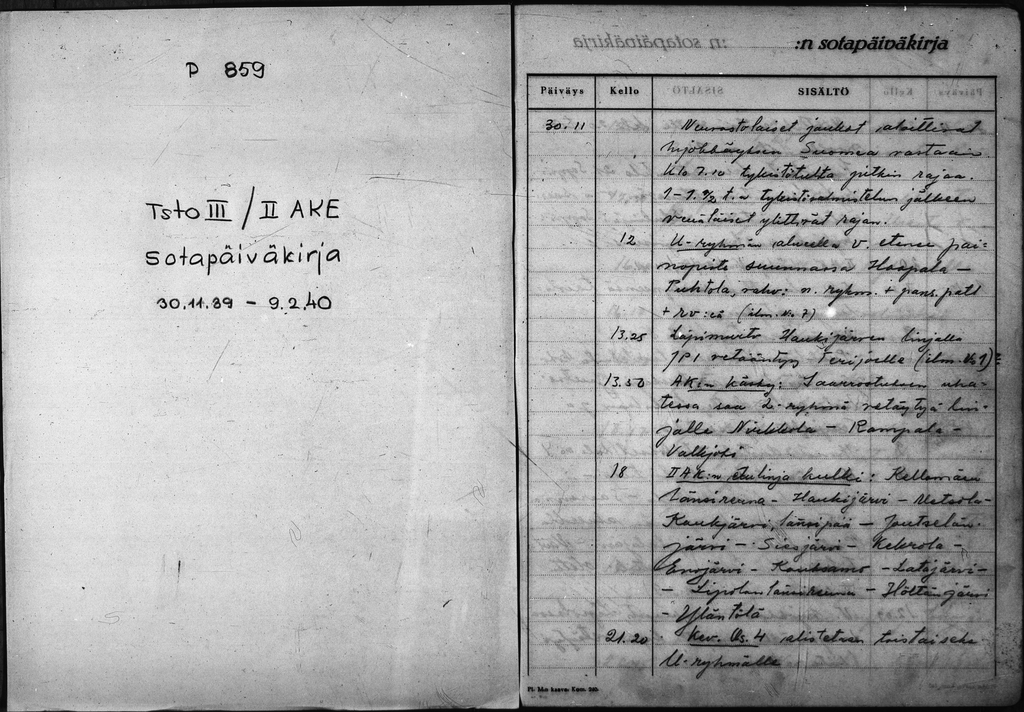 P 859
Tsto III / II AKE
Sotapäiväkirja
30.11.39 - 9.2.40
:n sotapäiväkirja
Päiväys Kello SISÄLTÖ
30.11 Neuvostolaiset joukot aloittivat
hyökkäyksen Suomea vastaan
klo 7.00 tykistötulta pitkin rajaa.
1-1 ½ t.n tykistövalmistelun jälkeen
venäläiset ylittivät rajan.
12 U-ryhmän alueella v. etenee pai-
nopiste suunnassa Haapala -
Puhtola, vahv: n. rykm. + pans. patl
+ rv:eä (ilm. No. 7)
13.25 Läpimurto Haukijärven linjalla
JP1 vetääntyy Terijoelle (ilm. No 9)
13.50 AK:n käsky: Saarrostuksen uha-
tessa saa L-ryhmä vetäytyä lin-
jalle Niekkola - Rampala -
Valkjoki
18 II AK:n etulinja kulki: Kellomäen
länsireuna - Haukijärvi - Metsola
Kaukjärvi, länsipää - Joutselän
järvi - Siesjärvi - Kekrola -
Enojärvi - - Latajärvi -
- Lipolan länsireuna - Höltänjärvi
- Yläntölä
21.20 Kev. Os. 4 alistetaan toistaiseksi
U-ryhmälle